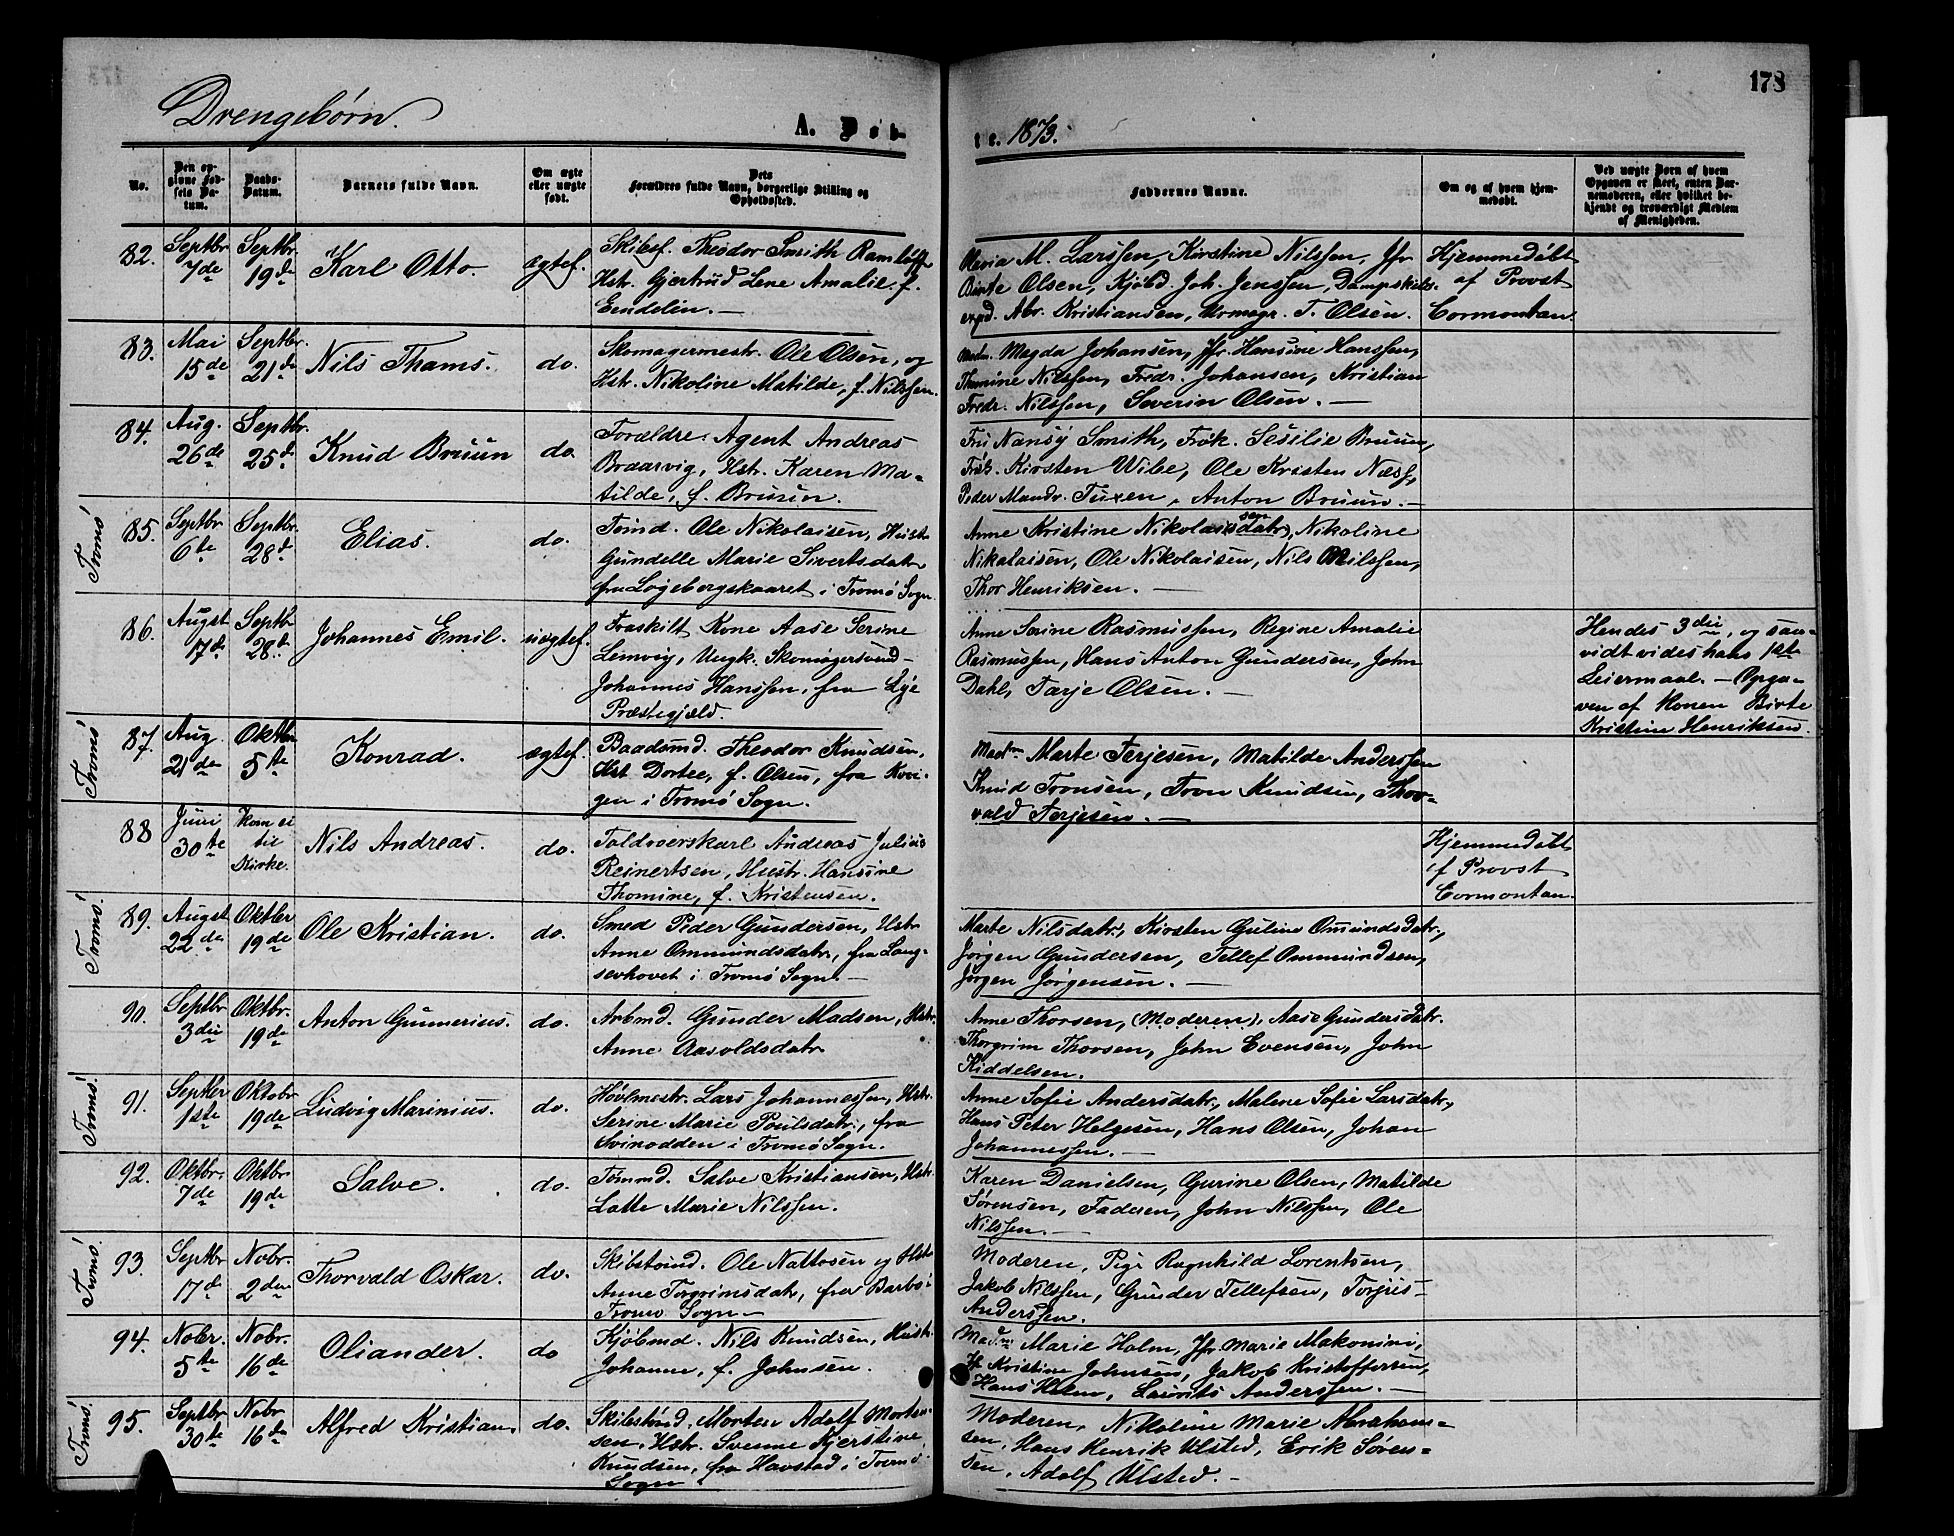 178
Drengebørn.
A. Døb-
te. 1873.
No.
Den opgivne Fødsels Datum.
Daabs-Datum.
Barnets fulde Navn.
Om ægte eller uægte født.
Dets Forældres fulde Navn, borgerlige Stilling og Opholdssted.
Faddernes Navne.
Om og af hvem hjemmedøbt.
Ved uægte Børn af hvem Opgaven er skeet, enten Barnemoderen, eller hvilket bekjendt og troværdigt Medlem af Menigheden.
82. Septbr. 7de Septbr. 19de Karl Otto. ægtef.
Skibsf. Theodor Smith Ramløff
Hstr. Gjertrud Lene Amalie f.
Eendelen. —
Maria M. Larssen, Kirstine Nilssen, Jfr.
Birte Olsen, Kjøbd. Joh. Jenssen, Dampskibs-
exped. Abr. Kristiansen, Urmagr. T. Olsen.
Hjemmedøbt
af Provst
Cormontan.
83. Mai 15de Septbr. 21de Nils Thams. do.
Skomagermestr. Ole Olsen, og
Hstr. Nikoline Matilde, f. Nilssen.
Madm. Magda Johansen, Jfr. Hansine Hanssen,
Thomine Nilssen, Fredr. Johansen, Kristian
Fredr. Nilssen, Severin Olsen. —
84. Aug. 26de Septbr. 25de Knud Bruun do.
Forældre: Agent Andreas
Braarvig, Hstr. Karen Ma-
tilde, f. Bruun.
Fru Nansy Smith, Frøk. Sesilie Bruun,
Frøk. Kirsten Wibe, Ole Kristen Næss,
Peder Mandr. Tuxen, Anton Bruun. —
Tromø
85. Septbr. 6te Septbr. 28de Elias. do.
Tømd. Ole Nikolaisen, Hustr.
Gundelle Marie Sivertsdatr
fra Løgebergskaaret i Tromø Sogn.
Anne Kristine Nikolaisdatr, Nikoline
sen
Nikolaisen, Ole Nikolaisen, Nils Nilssen,
Thor Henriksen. —
86. Augst. 17de Septbr. 28de Johannes Emil. uægtef.
Fraskilt Kone Aase Serine
Lemvig, Ungk. Skomagersvend
Johannes Hanssen, fra Lye
Præstegjæld.
Anne Serine Rasmussen, Regine Amalie
Rasmussen, Hans Anton Gundersen, John
Dahl, Tarje Olsen. —
Hendes 3die, og saa-
vidt vides hans 1ste
Leiermaal. — Opga-
ven af Konen Birte
Kristine Henriksen.
Tromø
87. Aug. 21de Oktbr. 5te Konrad. ægtef.
Baadsmd. Theodor Knudsen,
Hst. Dortee, f. Olsen, fra Kvi-
gen i Tromø Sogn.
Madm. Marte Terjesen, Matilde Anderssen
Knud Tronsen, Tron Knudsen, Thor-
vald Terjesen. —
88 Juni 30te Kom ei til Kirke. Nils Andreas. do.
Toldroerskarl Andreas Julius
Reinertsen, Hustr. Hansine
Thomine, f. Kristensen.
Hjemmedøbt
af Provst
Cormontan.
Tromø.
89. Augst 22de Oktbr 19de Ole Kristian. do.
Smed Peder Gundersen, Hstr.
Anne Ommundsdatr, fra Lang-
sevhovet i Tromø Sogn. —
Marte Nilsdatr., Kirsten Guline Omundsdatr.,
Jørgen Gundersen, Tellef Ommundsen,
Jørgen Jørgensen. —
90. Septbr. 3die Oktbr. 19de Anton Gunnerius. do.
Arbmd. Gunder Madsen, Hstr.
Anne Aasoldsdatr.
Anne Thorsen, (Moderen), Aase Gundersdatr.
Thorgrim Thorsen, John Evensen, John
Kiddelsen.
Tromø.
91. Septbr 1ste Oktobr. 19de Ludvig Marinius. do.
Høvlmestr. Lars Johannessen, Hstr.
Serine Marie Poulsdatr., fra
Svinodden i Tromø Sogn.
Anne Sofie Andersdatr., Malene Sofie Larsdatr.,
Hans Peter Helgesen, Hans Olsen, Johan
Johannessen. —
92. Oktbr. 7de Oktbr. 19de Salve. do.
Tømmd. Salve Kristiansen, Hstr.
Latte Marie Nilssen.
Karen Danielsen, Gurine Olsen, Matilde
Sørensen, Faderen, John Nilssen, Ole
Nilssen. —
Tromø.
93. Septbr 17de Nobr. 2den Thorvald Oskar. do.
Skibstømd. Ole Nattosen og Hstr
Anne Torgrimsdatr, fra Barbo i
Tromø Sogn —
Moderen, Pige Ragnhild Lorentsen,
Jakob Nilssen, Gunder Tellefsen, Torjus
Anderssen.
94. Nobr. 5te Nobr. 16de Oliander. do
Kjøbmd. Nils Knudsen, Hustr.
Johanne, f. Johnsen.
Madm. Marie Holm, Jfr. Marie Makonini,
Jf. Kristine Johnsen, Jakob Kristoffersen,
Hans Holm, Laurits Anderssen. —
Tromø.
95. Septbr 30te Nobr 16de Alfred Kristian. do.
Skibstømd. Morten Adolf Morten-
sen, Hstr. Svenne Kjerstine
Knudsen, fra Havstad i Tromø
Sogn
Moderen, Nikoline Marie Abraham-
sen, Hans Henrik Ulsted, Erik Søren-
sen, Adolf Ulsted. —